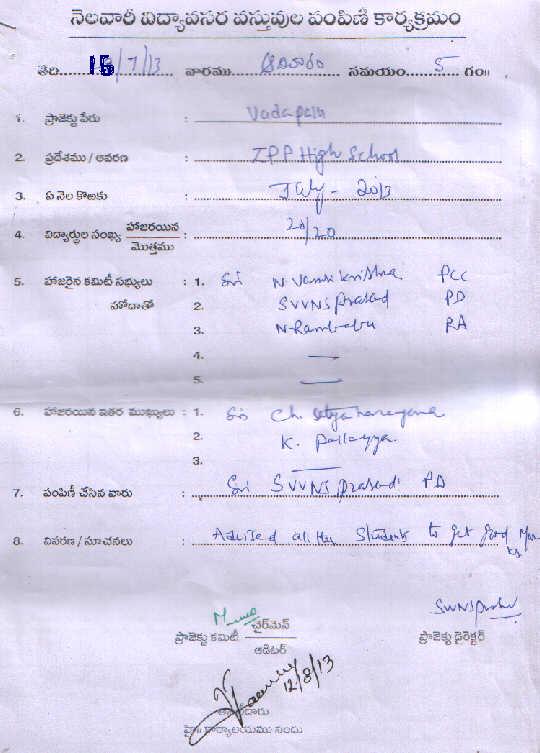 నెలవారీ విద్యావసర వస్తువుల పంపిణీ కార్యక్రమం
తేది......15/7/13 వారము ...... సమయం......5...... గం॥
1. ప్రాజెక్టు పేరు : Vadapalli
2. ప్రదేశము / ఆవరణ : ZPP High School
3. ఏ నెల కొఱకు : July - 2013
4. విద్యార్థుల సంఖ్య హాజరయిన / మొత్తము : 20/20
5. హాజరైన కమిటీ సభ్యులు హోదాతో : 1. శ్రీ N. Vamsi Krishna PCC
2. SVVNS Prasad PD
3. N. Rambabu RA
4. —
5. —
6. హాజరయిన ఇతర ముఖ్యులు : 1. శ్రీ Ch. Satyanarayana
2. K. Pallayya
3. —
7. పంపిణీ చేసిన వారు : శ్రీ SVVNS Prasad PD
8. వివరణ / సూచనలు : Advised all the students to get good Marks
SVVNS Prasad
ప్రాజెక్టు కమిటీ ఛైర్‌మెన్ / ఆడిటర్
ప్రాజెక్టు డైరెక్టర్
12/8/13